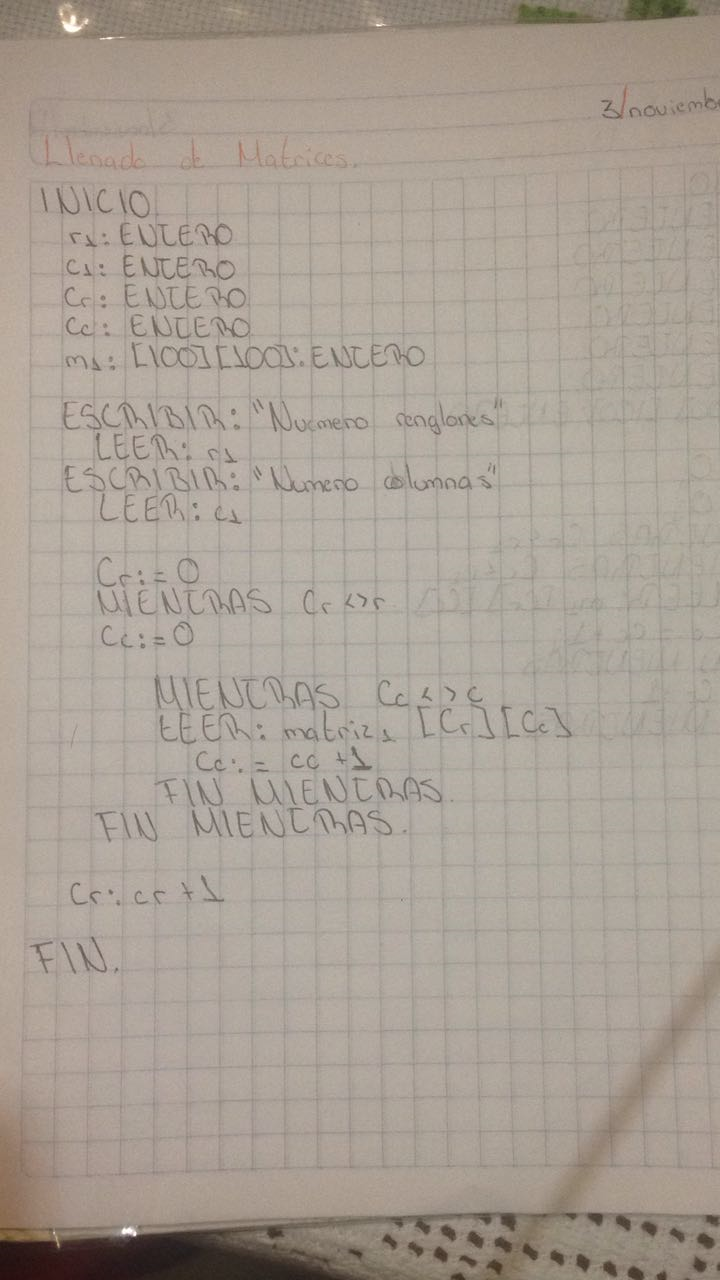 3/noviemb
Llenado de Matrices.
INICIO
r1: ENTERO
c1: ENTERO
Cr: ENTERO
Cc: ENTERO
m1: [100][100]: ENTERO
ESCRIBIR: "Nucmero renglones"
LEER: r1
ESCRIBIR: "Numero columnas"
LEER: c1
Cr:= 0
MIENTRAS Cr <> r
Cc:= 0
MIENTRAS Cc <> c
LEER: matriz1 [Cr][Cc]
Cc:= cc +1
FIN MIENTRAS.
FIN MIENTRAS.
Cr: cr +1
FIN.